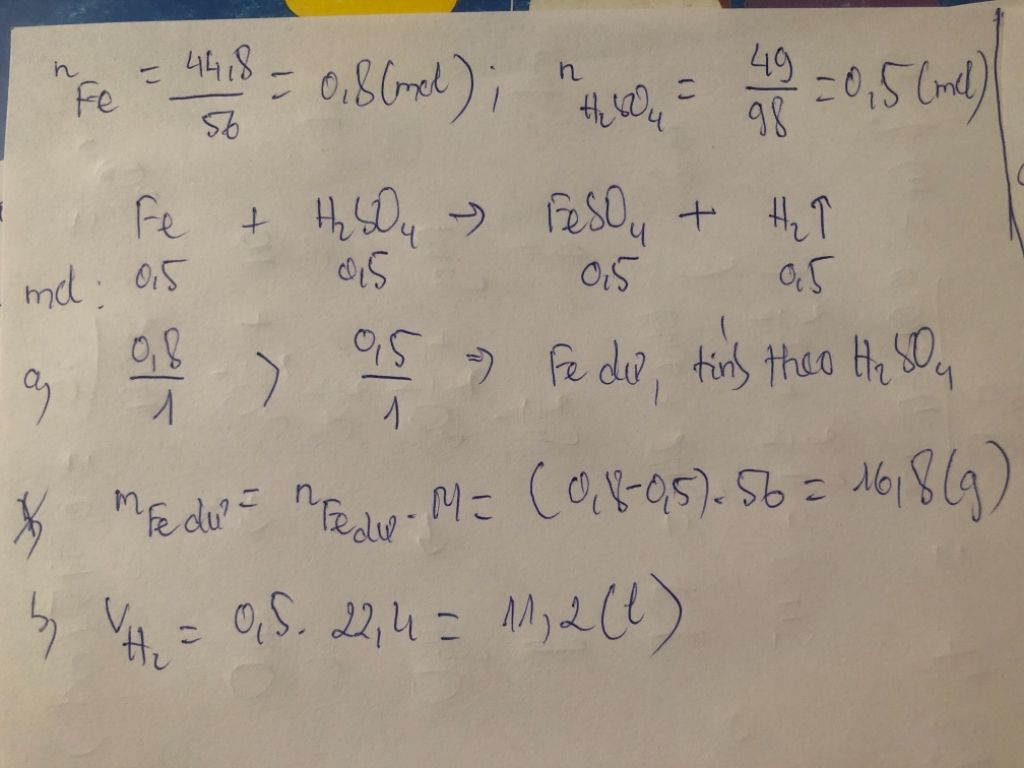 n Fe = 44,8/56 = 0,8 (mol) ; n H₂SO₄ = 49/98 = 0,5 (mol)
Fe + H₂SO₄ → FeSO₄ + H₂↑
mol: 0,5 0,5 0,5 0,5
a, 0,8/1 > 0,5/1 => Fe dư, tính theo H₂SO₄
m Fe dư = n Fe dư . M = (0,8-0,5). 56 = 16,8 (g)
b, V H₂ = 0,5. 22,4 = 11,2 (l)